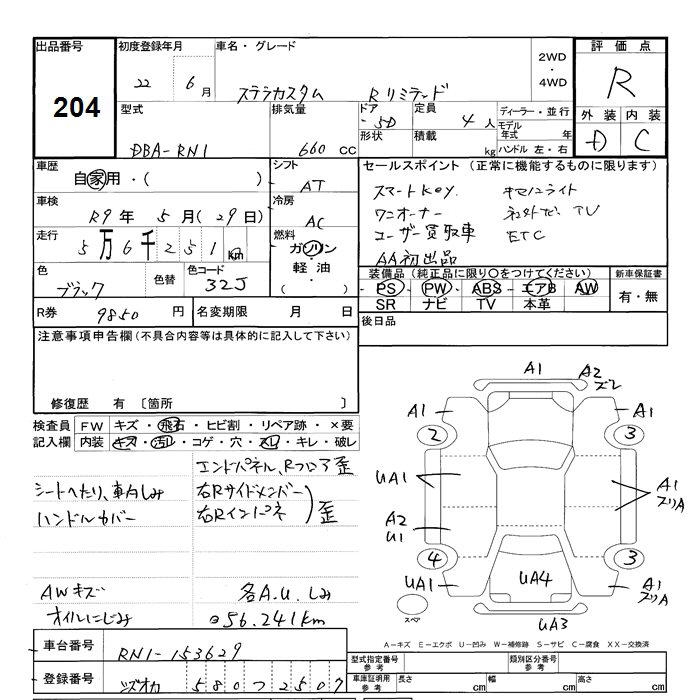 出品番号
204
初度登録年月
22 6月
車名・グレード
ステラカスタム Rリミテッド
2WD
・
4WD
評価点
R
型式
DBA-RN1
排気量
660 cc
ドア
5D
形状
定員
4人
積載
kg
ディーラー・並行
モデル年式 年
ハンドル 左・右
外装 内装
D C
車歴
自家用・( )
シフト
AT
車検
R9年 5月(29日)
冷房
AC
走行
5万6千251km
燃料
ガソリン
軽油
( )
色
ブラック
色替
色コード
32J
R券 9850円
名変期限 月 日
セールスポイント (正常に機能するものに限ります)
スマートKEY. キセノンライト
ワンオーナー
TV
ユーザー買取車 ETC
AA初出品
装備品(純正品に限り○をつけてください)
新車保証書
PS PW ABS エアB AW
SR ナビ TV 本革
有・無
後日品
注意事項申告欄(不具合内容等は具体的に記入して下さい)
修復歴 有〔箇所 〕
検査員記入欄
FW キズ・飛石・ヒビ割・リペア跡・×要
内装 キズ・汚レ・コゲ・穴・スレ・キレ・破レ
エンドパネル、Rフロア歪
シートへたり、車内しみ
右Rサイドメンバー
ハンドルカバー
右Rインパネ
歪
AWキズ
各A.U.しみ
オイルにじみ
56.241km
A1
A2
ズレ
A1
A1
2
3
UA1
A1
スリA
A2
U1
4
3
UA1
UA4
A1
スリA
スペア
UA3
A-キズ E-エクボ U-凹み W-補修跡 S-サビ C-腐食 XX-交換済
車台番号
RN1-153629
登録番号
シズオカ 580 ツ 2507
型式指定番号
参考
類別区分番号
参考
車庫証明用
参考
長さ cm
幅 cm
高さ cm